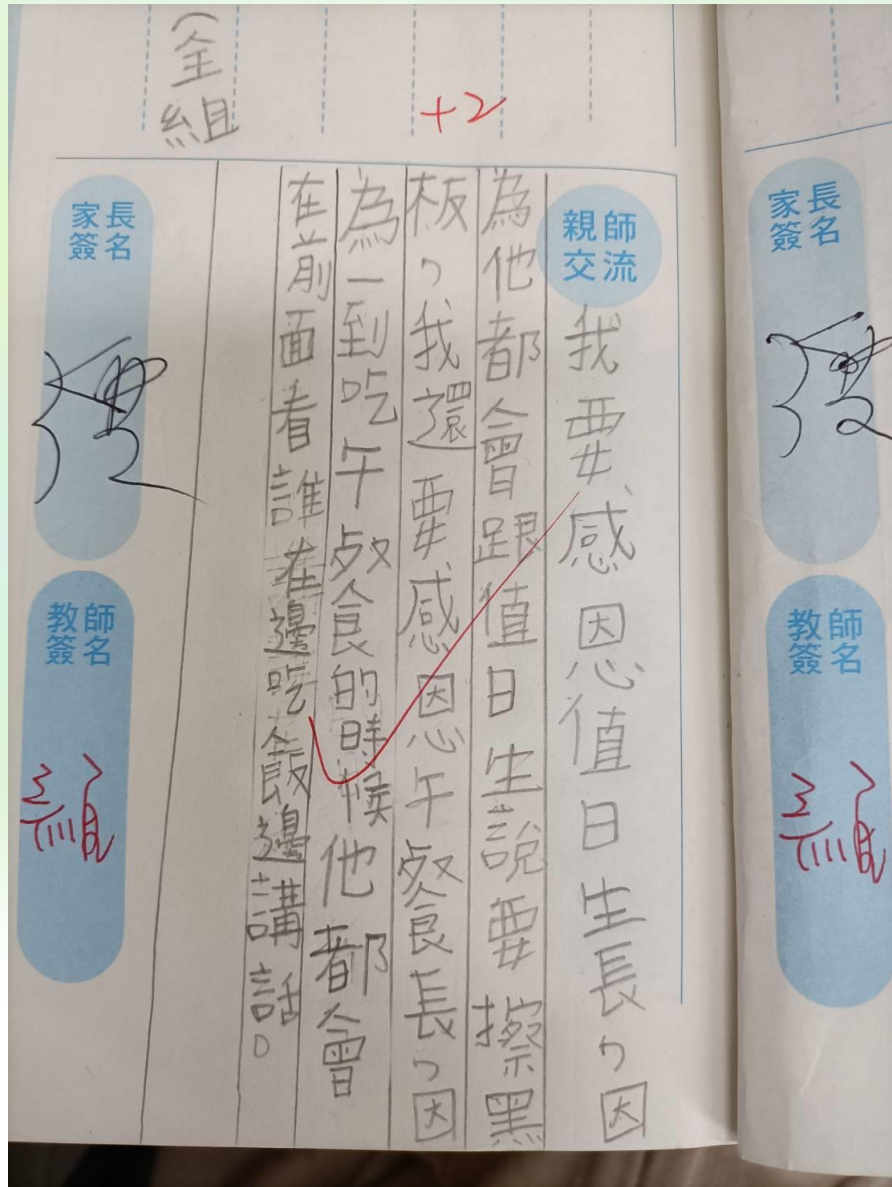 親師交流
我要感恩值日生長，因
為他都會跟值日生說要擦黑
板，我還要感恩午餐長，因
為一到吃午餐的時候他都會
在前面看誰在邊吃飯邊講話。
+2
（全組
家長簽名
教師簽名
家長簽名
教師簽名